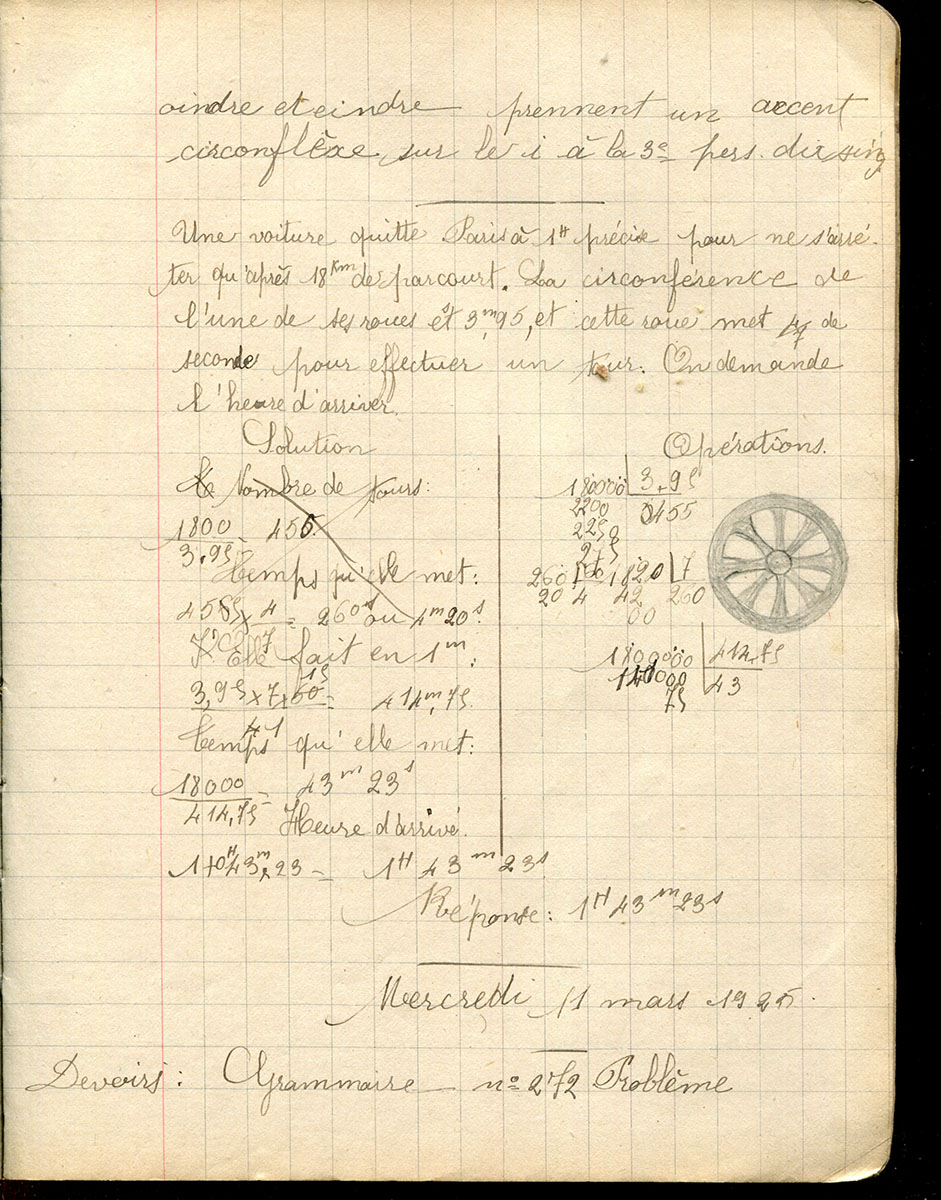 oindre et eindre prennent un accent
circonflèxe sur le i à la 3e pers. du sing
Une voiture quitte Paris à 1H précise pour ne s'arrê-
ter qu'après 18Km de parcourt. La circonférence de
l'une de ses roues et 3m,95, et cette roue met 4/7 de
seconde pour effectuer un tour. On demande
l'heure d'arriver.
Solution
Nombre de tours:
1800/3,95 = 455
Temps qu'elle met:
= 260s ou 4m20s.
Elle fait en 1m:
3,95 x 7 x 60 = 414m,75.
Temps qu'elle met:
18000/414,75 = 43m 23s
Heure d'arrivé.
= 1H 43m 23s
Réponse: 1H 43m 23s
Opérations.
180000 3,95
2200 0455
2250
275
260 60 1820 7
20 4 42 260
00
1800000 414,75
140000 43
75
Mercredi 11 mars 1925.
Devoirs: Grammaire no 272 Problème